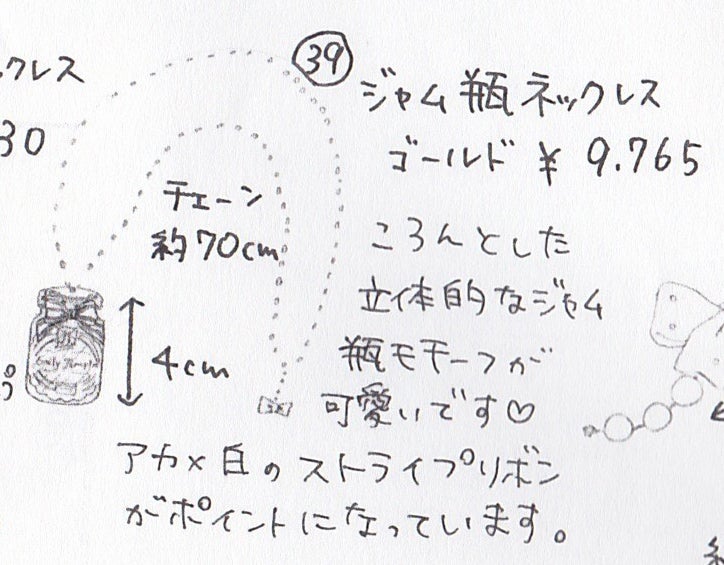 クレス
30
㊴
ジャム瓶ネックレス
ゴールド ¥ 9.765
チェーン
約70cm
4cm
ころんとした
立体的なジャム
瓶モチーフが
可愛いです♡
アカ×白のストライプリボン
がポイントになっています。